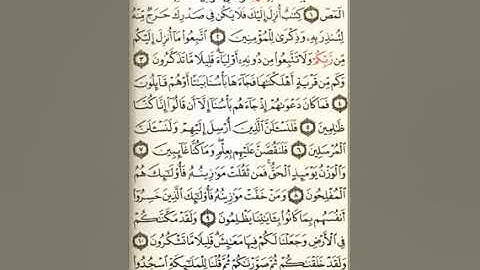 الٓمٓصٓ ١ كِتَٰبٌ أُنزِلَ إِلَيْكَ فَلَا يَكُن فِى صَدْرِكَ حَرَجٌ مِّنْهُ
لِتُنذِرَ بِهِۦ وَذِكْرَىٰ لِلْمُؤْمِنِينَ ٢ ٱتَّبِعُوا۟ مَآ أُنزِلَ إِلَيْكُم
مِّن رَّبِّكُمْ وَلَا تَتَّبِعُوا۟ مِن دُونِهِۦٓ أَوْلِيَآءَ ۗ قَلِيلًا مَّا تَذَكَّرُونَ ٣
وَكَم مِّن قَرْيَةٍ أَهْلَكْنَٰهَا فَجَآءَهَا بَأْسُنَا بَيَٰتًا أَوْ هُمْ قَآئِلُونَ
٤ فَمَا كَانَ دَعْوَىٰهُمْ إِذْ جَآءَهُم بَأْسُنَآ إِلَّآ أَن قَالُوٓا۟ إِنَّا كُنَّا
ظَٰلِمِينَ ٥ فَلَنَسْـَٔلَنَّ ٱلَّذِينَ أُرْسِلَ إِلَيْهِمْ وَلَنَسْـَٔلَنَّ
ٱلْمُرْسَلِينَ ٦ فَلَنَقُصَّنَّ عَلَيْهِم بِعِلْمٍ ۖ وَمَا كُنَّا غَآئِبِينَ ٧
وَٱلْوَزْنُ يَوْمَئِذٍ ٱلْحَقُّ ۚ فَمَن ثَقُلَتْ مَوَٰزِينُهُۥ فَأُو۟لَٰٓئِكَ هُمُ
ٱلْمُفْلِحُونَ ٨ وَمَنْ خَفَّتْ مَوَٰزِينُهُۥ فَأُو۟لَٰٓئِكَ ٱلَّذِينَ خَسِرُوٓا۟
أَنفُسَهُم بِمَا كَانُوا۟ بِـَٔايَٰتِنَا يَظْلِمُونَ ٩ وَلَقَدْ مَكَّنَّٰكُمْ
فِى ٱلْأَرْضِ وَجَعَلْنَا لَكُمْ فِيهَا مَعَٰيِشَ ۗ قَلِيلًا مَّا تَشْكُرُونَ ١٠
وَلَقَدْ خَلَقْنَٰكُمْ ثُمَّ صَوَّرْنَٰكُمْ ثُمَّ قُلْنَا لِلْمَلَٰٓئِكَةِ ٱسْجُدُوا۟